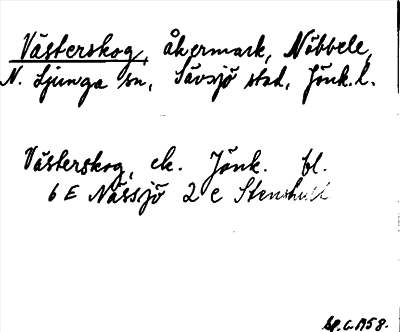 Västerskog, åkermark, Nöbbele,
N. Ljunga sn, Sävsjö stad, Jönk. l.
Västerskog, ek. Jönk. bl.
6 E Nässjö 2 c Stenshult
Sp. C. 1958.